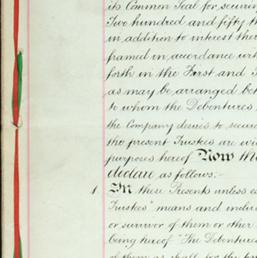 its Common Seal for securing
Two hundred and fifty th
in addition to interest ther
framed in accordance with
forth in the First and S
as may be arranged bet
to whom the Debentures
the Company desires to secure
the present Trustees are wi
purposes hereof Now th
declare as follows:-
1. In these Presents unless co
Trustees" means and inclu
or survivor of them or other
being hereof "The Debentures
of them as shall for the